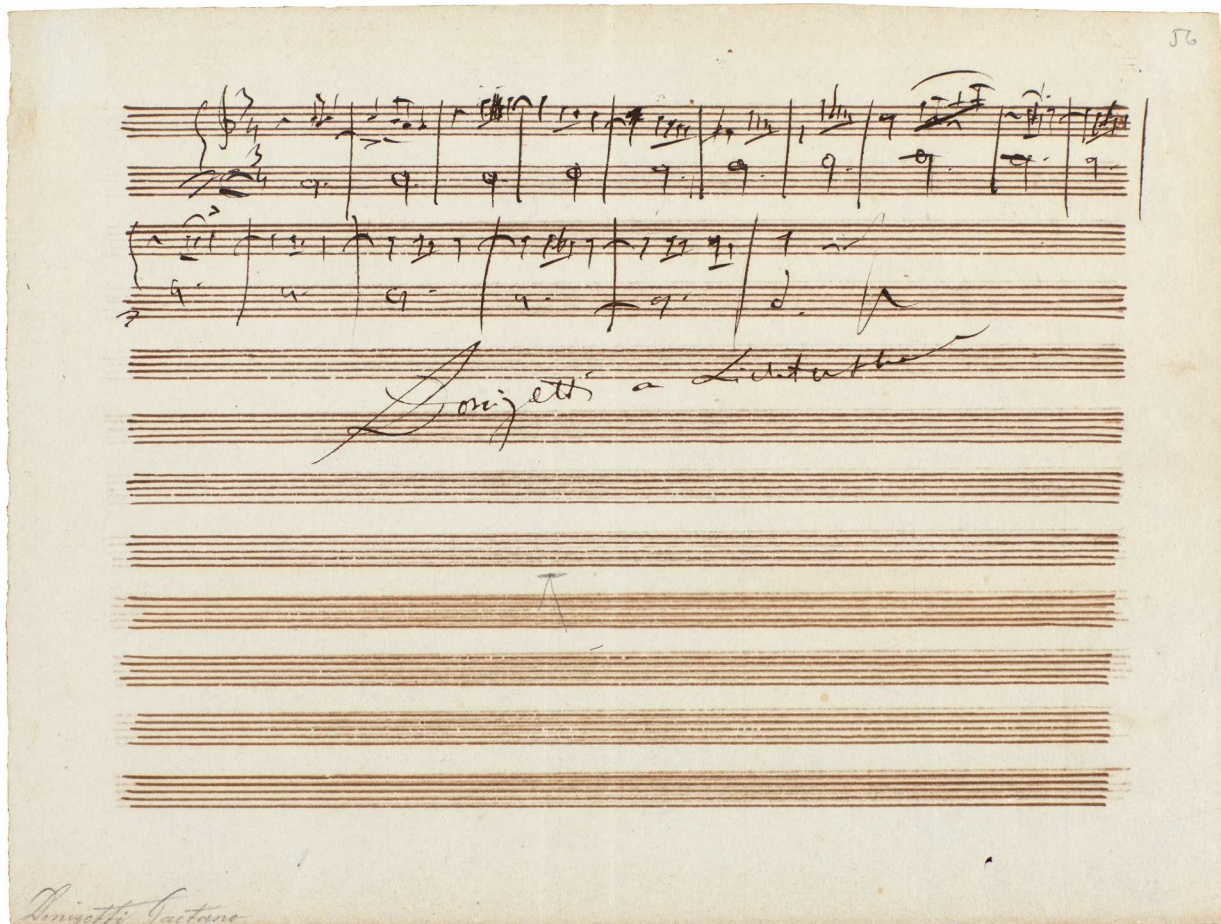 56
3
4
3
4
Donizetti a Lichtenthal
Donizetti Gaetano